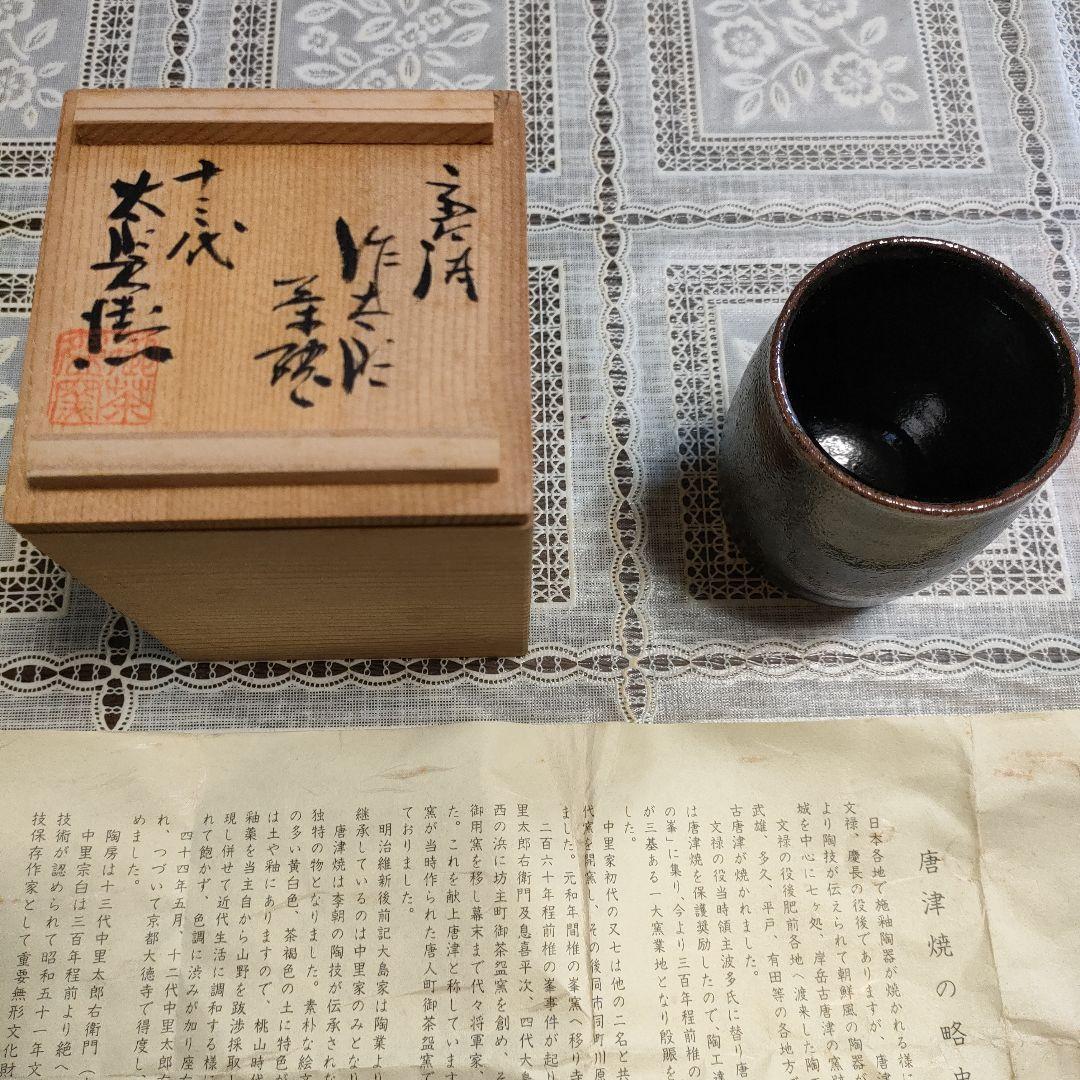 唐津
茶碗
十三代
唐津焼の略
日本各地で施釉陶器が焼かれる様に
文禄、慶長の役後でありますが、唐津
より陶技が伝えられて朝鮮風の陶器が
城を中心に七ヶ処、岸岳古唐津の窯跡
文禄の役後肥前各地へ渡来した陶工
武雄、多久、平戸、有田等の各地方
古唐津が焼かれました。
文禄の役当時領主波多氏に替り唐
は唐津焼を保護奨励したので、陶工達
の峯」に集り、今より三百年程前椎の
が三基ある一大窯業地となり殷賑を
した。
中里家初代の又七は他の二名と共
代窯を開窯し、その後同市同町川原
ました。元和年間椎の峯窯へ移り寺
二百六十年程前椎の峯事件が起り
里太郎右衛門及息喜平次、四代大島
西の浜に坊主町御茶盌窯を創め、そ
御用窯を移し幕末まで代々将軍家、
た。これを献上唐津と称しています
窯が当時作られた唐人町御茶盌窯で
ておりました。
明治維新後前記大島家は陶業より
継承しているのは中里家のみとなり
唐津焼は李朝の陶技が伝承され
独特の物となりました。素朴な絵文
の多い黄白色、茶褐色の土に特色が
は土や釉にありますので、桃山時代
釉薬を当主自から山野を跋渉採取し
現し併せて近代生活に調和する様に
れて飽かず、色調に渋みが加り座右
四十四年五月、十二代中里太郎右
れ、つづいて京都大徳寺で得度し、
めました。
陶房は十三代中里太郎右衛門(
中里宗白は三百年程前より絶へ
技術が認められて昭和五十一年文
技保存作家として重要無形文化財